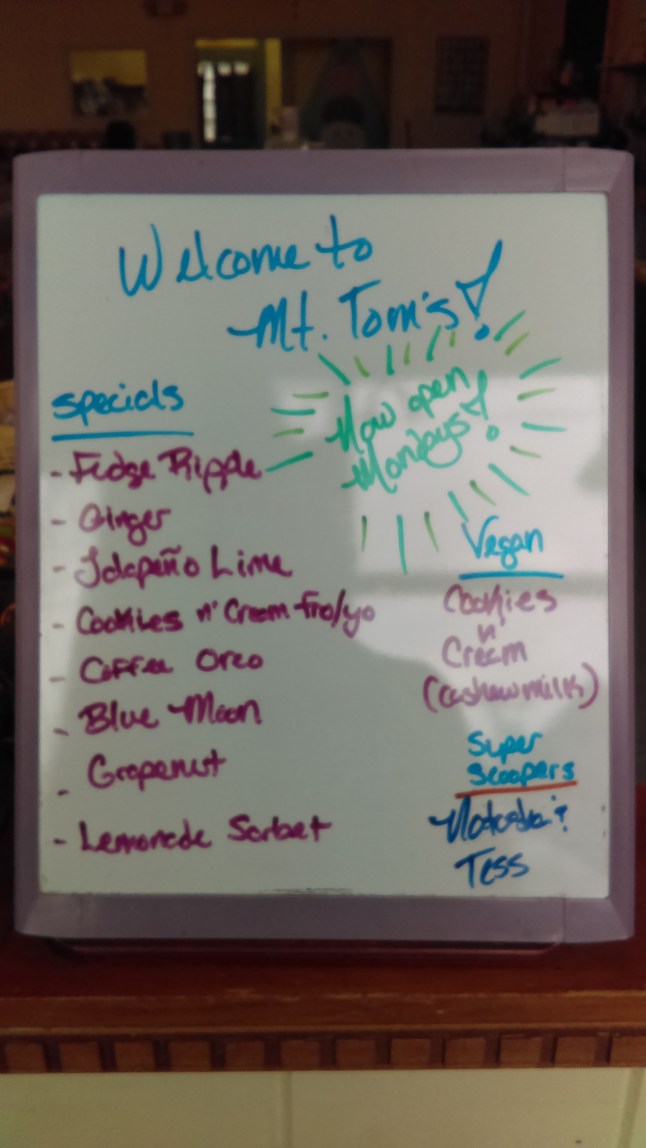 Welcome to
Mt. Tom's!
Now open
Mondays!
Specials
- Fudge Ripple
- Ginger
- Jalapeño Lime
- Cookies n' Cream fro/yo
- Coffee Oreo
- Blue Moon
- Grapenut
- Lemonade Sorbet
Vegan
Cookies
n'
Cream
(cashewmilk)
Super
Scoopers
Natasha &
Tess